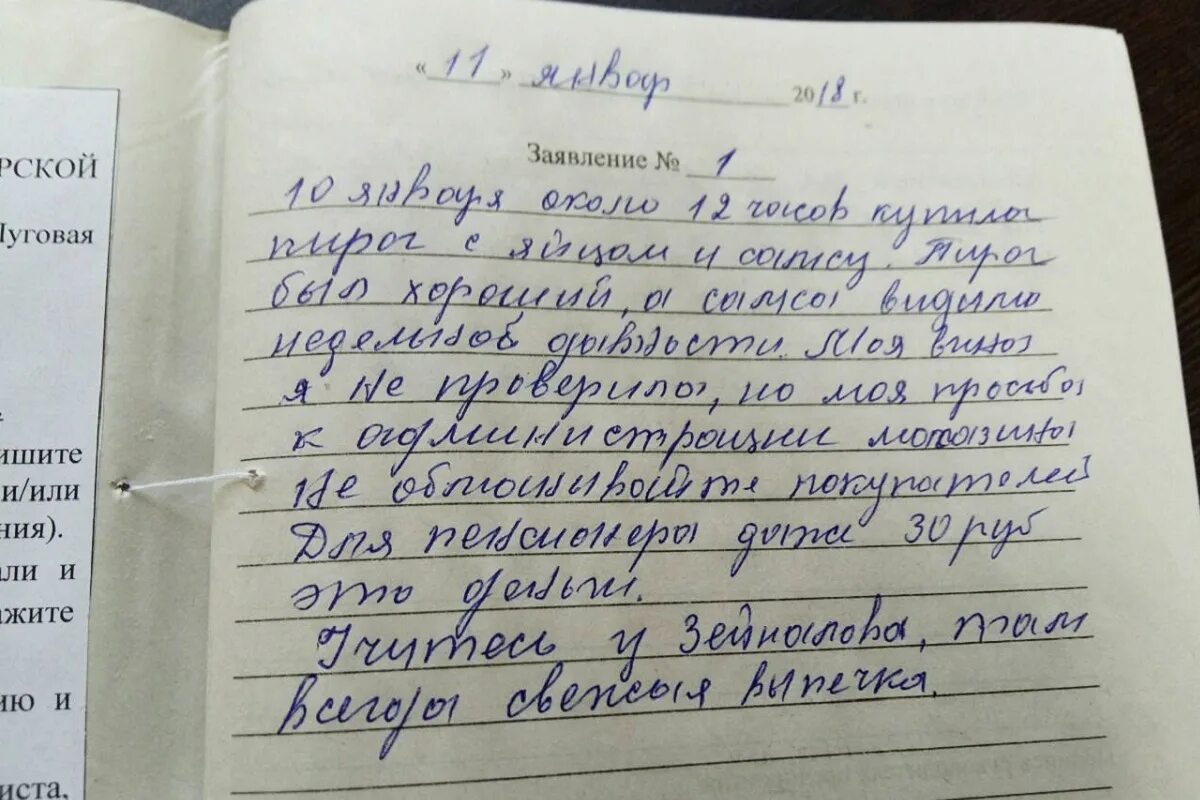 РСКОЙ
Луговая
ишите
и/или
ния).
али и
ажите
ию и
иста,
« 11 » январ 2018 г.
Заявление № 1
10 января около 12 часов купила
пирог с яйцом и самсу. Пирог
был хороший, а самса видимо
недельной давности. Моя вина
я не проверила, но моя просьба
к администрации магазина
Не обманывайте покупателей
Для пенсионера даже 30 руб
это деньги.
Учитесь у Зейналова, там
всегда свежая выпечка.